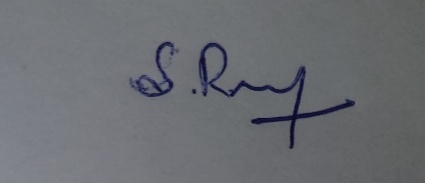 S. Roy